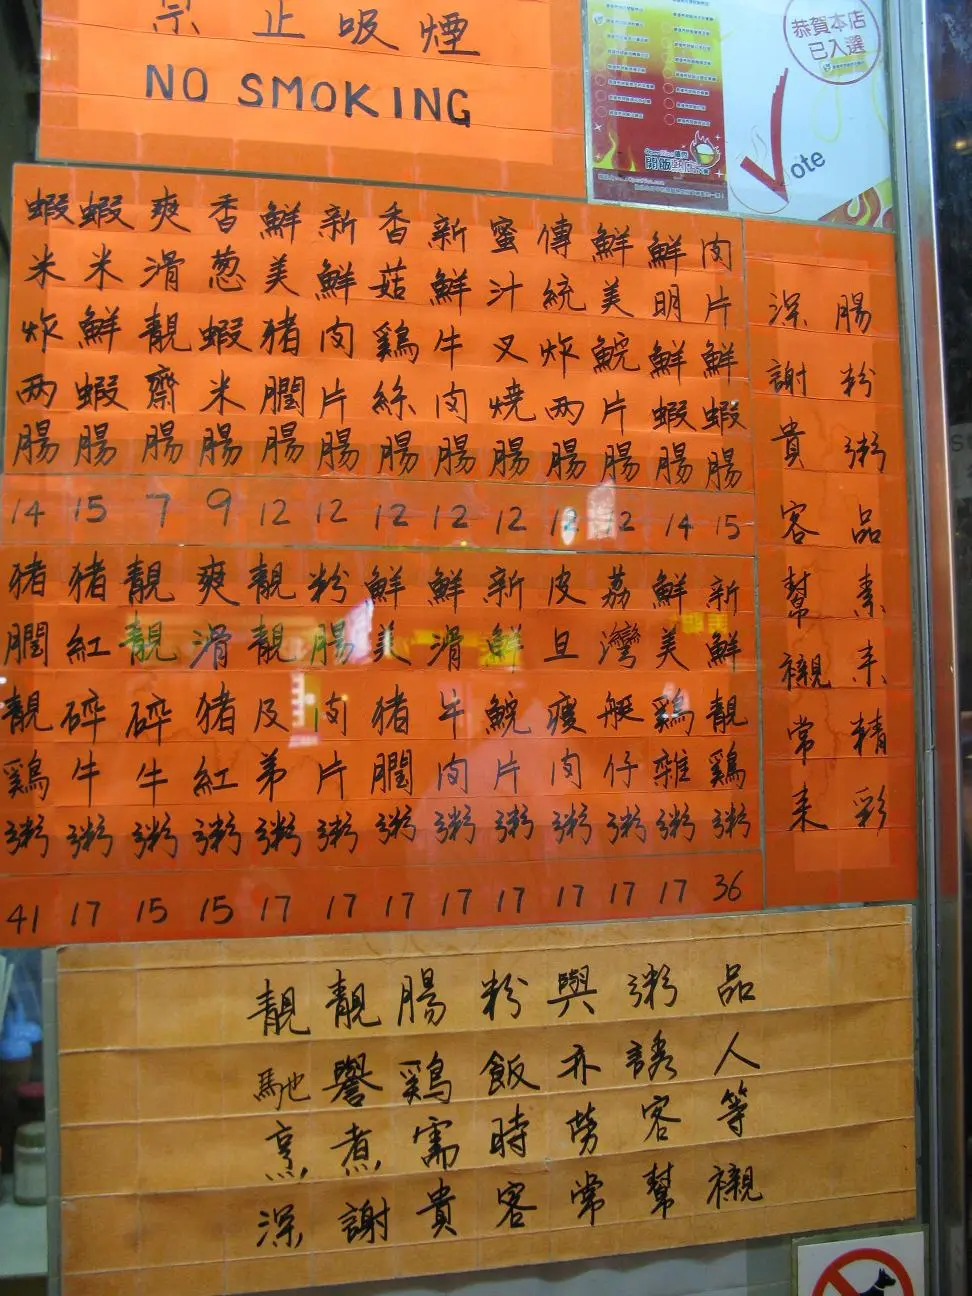 禁止吸煙
NO SMOKING
恭賀本店
已入選
Vote
開飯熱店
腸粉粥品素来精彩
深謝貴客幫襯常来
肉片鮮蝦腸 15
鮮明鮮蝦腸 14
鮮美鯇片腸 12
傳統炸两腸 12
蜜汁叉燒腸 12
新鮮牛肉腸 12
香菇鷄絲腸 12
新鮮肉片腸 12
鮮美猪膶腸 12
香葱蝦米腸 9
爽滑靚齋腸 7
蝦米鮮蝦腸 15
蝦米炸两腸 14
新鮮靚鷄粥 36
鮮美鷄雜粥 17
荔灣艇仔粥 17
皮旦瘦肉粥 17
新鮮鯇片粥 17
鮮滑牛肉粥 17
鮮美猪膶粥 17
粉腸肉片粥 17
靚靚及弟粥 17
爽滑猪紅粥 15
靚靚碎牛粥 15
猪紅碎牛粥 17
猪膶靚鷄粥 41
靚靚腸粉與粥品
馳譽鷄飯亦誘人
烹煮需時勞客等
深謝貴客常幫襯